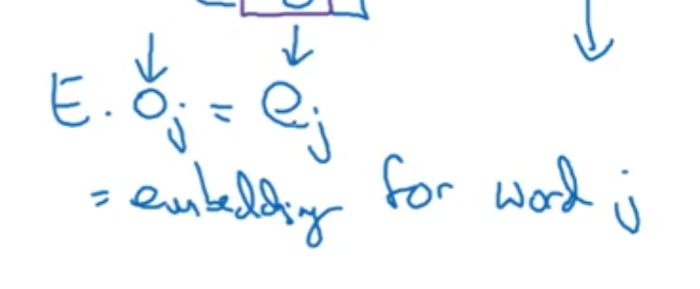 E · o_j = e_j
= embedding for word j